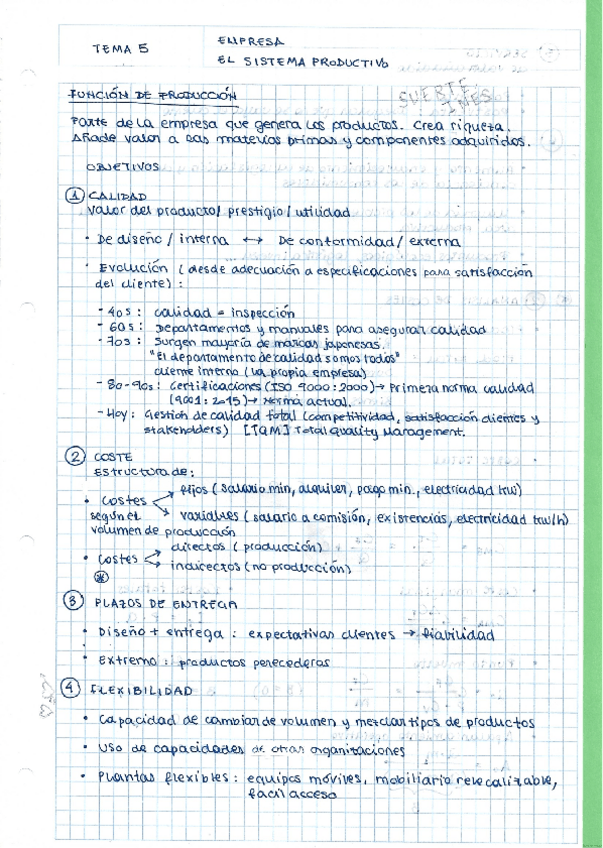 TEMA 5
EMPRESA
EL SISTEMA PRODUCTIVO
SUERTE
INES
FUNCIÓN DE PRODUCCIÓN
Parte de la empresa que genera los productos. Crea riqueza.
Añade valor a las materias primas y componentes adquiridos.
OBJETIVOS
① CALIDAD
Valor del producto / prestigio / utilidad
· De diseño / interna ↔ De conformidad / externa
· Evolución (desde adecuación a especificaciones para satisfacción
del cliente):
- 40s: calidad = inspección
- 60s: Departamentos y manuales para asegurar calidad
- 70s: Surgen mayoría de marcas japonesas.
"El departamento de calidad somos todos"
cliente interno (la propia empresa)
- 80-90s: Certificaciones (ISO 9000:2000) → Primera norma calidad
(9001:2015) → Norma actual.
- Hoy: Gestión de calidad total (competitividad, satisfacción clientes y
stakeholders) [TQM] Total Quality Management.
② COSTE
Estructura de:
· Costes → fijos (salario min, alquiler, pago min., electricidad kw)
según el → variables (salario a comisión, existencias, electricidad kw/h)
volumen de producción
· Costes → directos (producción)
→ indirectos (no producción)
③ PLAZOS DE ENTREGA
· Diseño + entrega: expectativas clientes → fiabilidad
· Extremo: productos perecederos
④ FLEXIBILIDAD
· Capacidad de cambiar de volumen y mezclar tipos de productos
· Uso de capacidades de otras organizaciones
· Plantas flexibles: equipos móviles, mobiliario relocalizable,
facil acceso